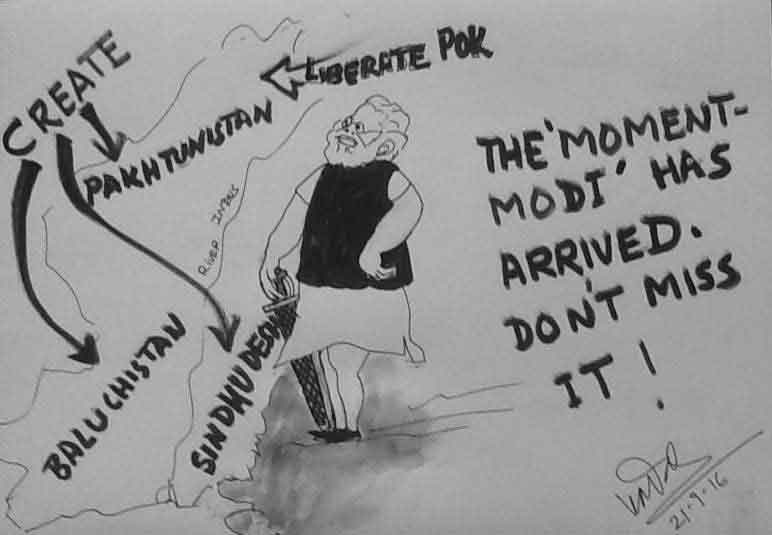 CREATE
LIBERATE POK
PAKHTUNISTAN
RIVER INDUS
BALUCHISTAN
SINDHUDESH
THE 'MOMENT-
MODI' HAS
ARRIVED.
DON'T MISS
IT!
21-9-16